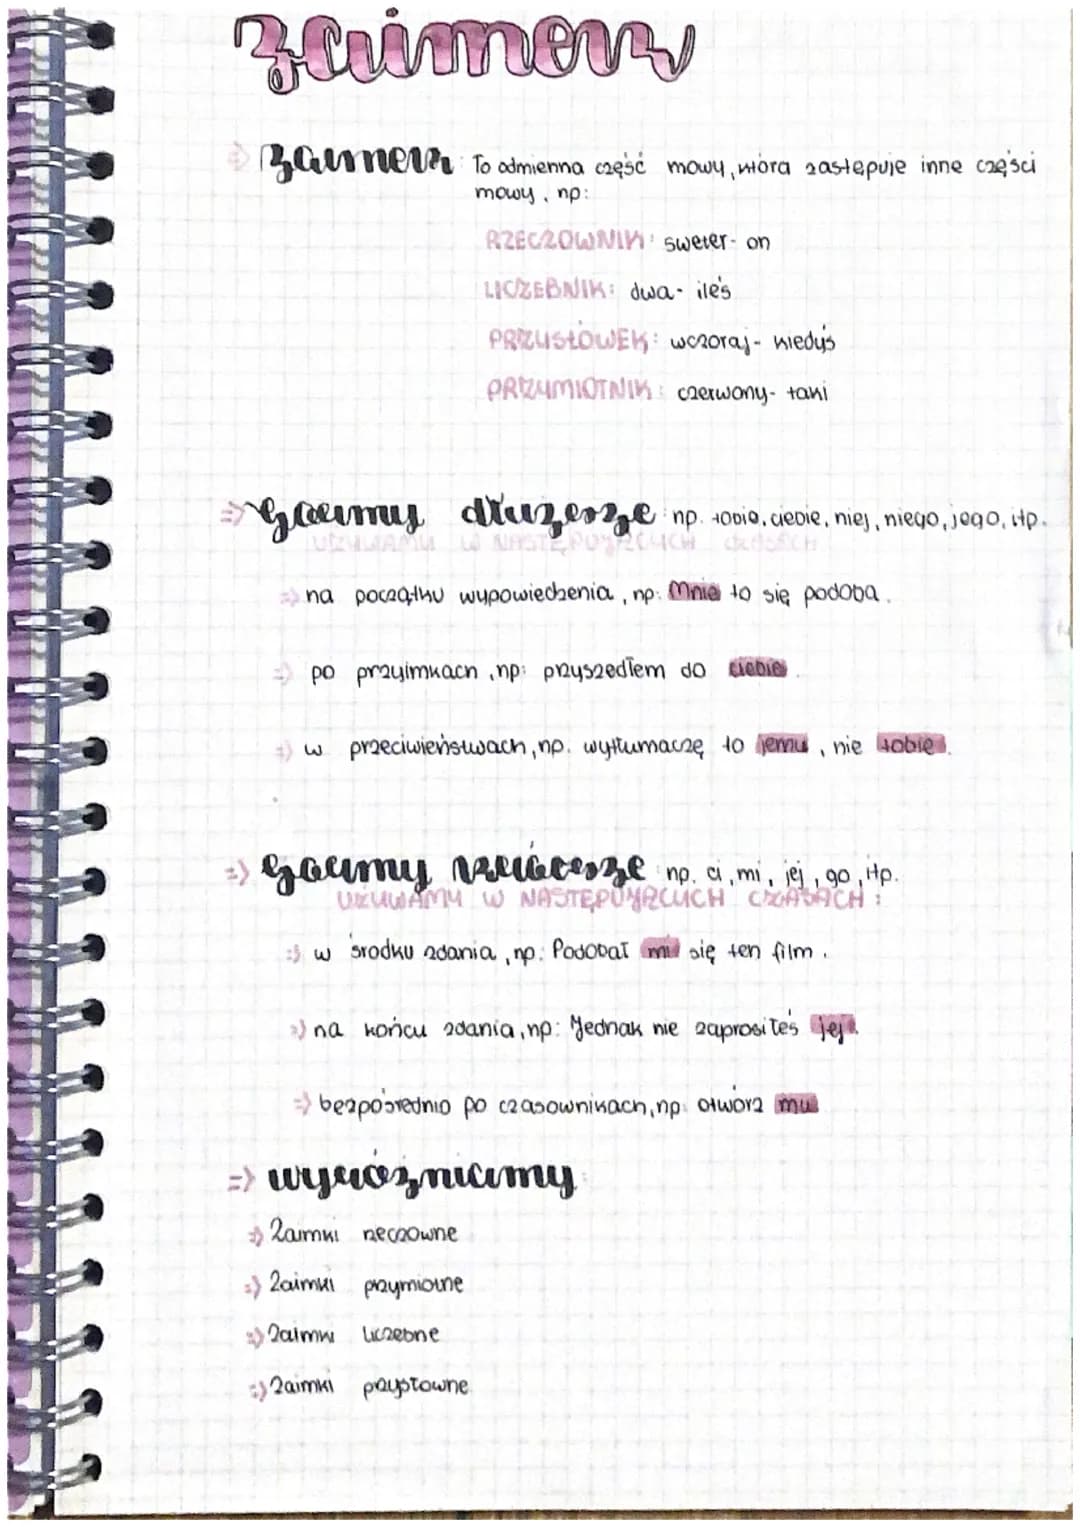 zaimek
⇒ zaimek: To odmienna część mowy, która zastępuje inne części
mowy, np:
RZECZOWNIK: sweter- on
LICZEBNIK: dwa- ileś
PRZYSŁÓWEK: wczoraj- kiedyś
PRZYMIOTNIK: czerwony- taki
⇒ formy dłuższe np. tobie, ciebie, niej, niego, jego, itp.
UŻYWAMY W NASTĘPUJĄCYCH CZASACH
⇒ na początku wypowiedzenia, np: Mnie to się podoba.
⇒ po przyimkach, np: przyszedłem do ciebie.
⇒ w przeciwieństwach, np. wytłumaczę to jemu, nie tobie.
⇒ formy krótsze np. ci, mi, jej, go, itp.
UŻYWAMY W NASTĘPUJĄCYCH CZASACH:
⇒ w środku zdania, np: Podobał mi się ten film.
⇒ na końcu zdania, np: Jednak nie zaprosiłeś jej.
⇒ bezpośrednio po czasownikach, np: otwórz mu
⇒ wyróżniamy:
⇒ Zaimki rzeczowne
⇒ Zaimki przymiotne
⇒ Zaimki liczebne
⇒ Zaimki przysłowne